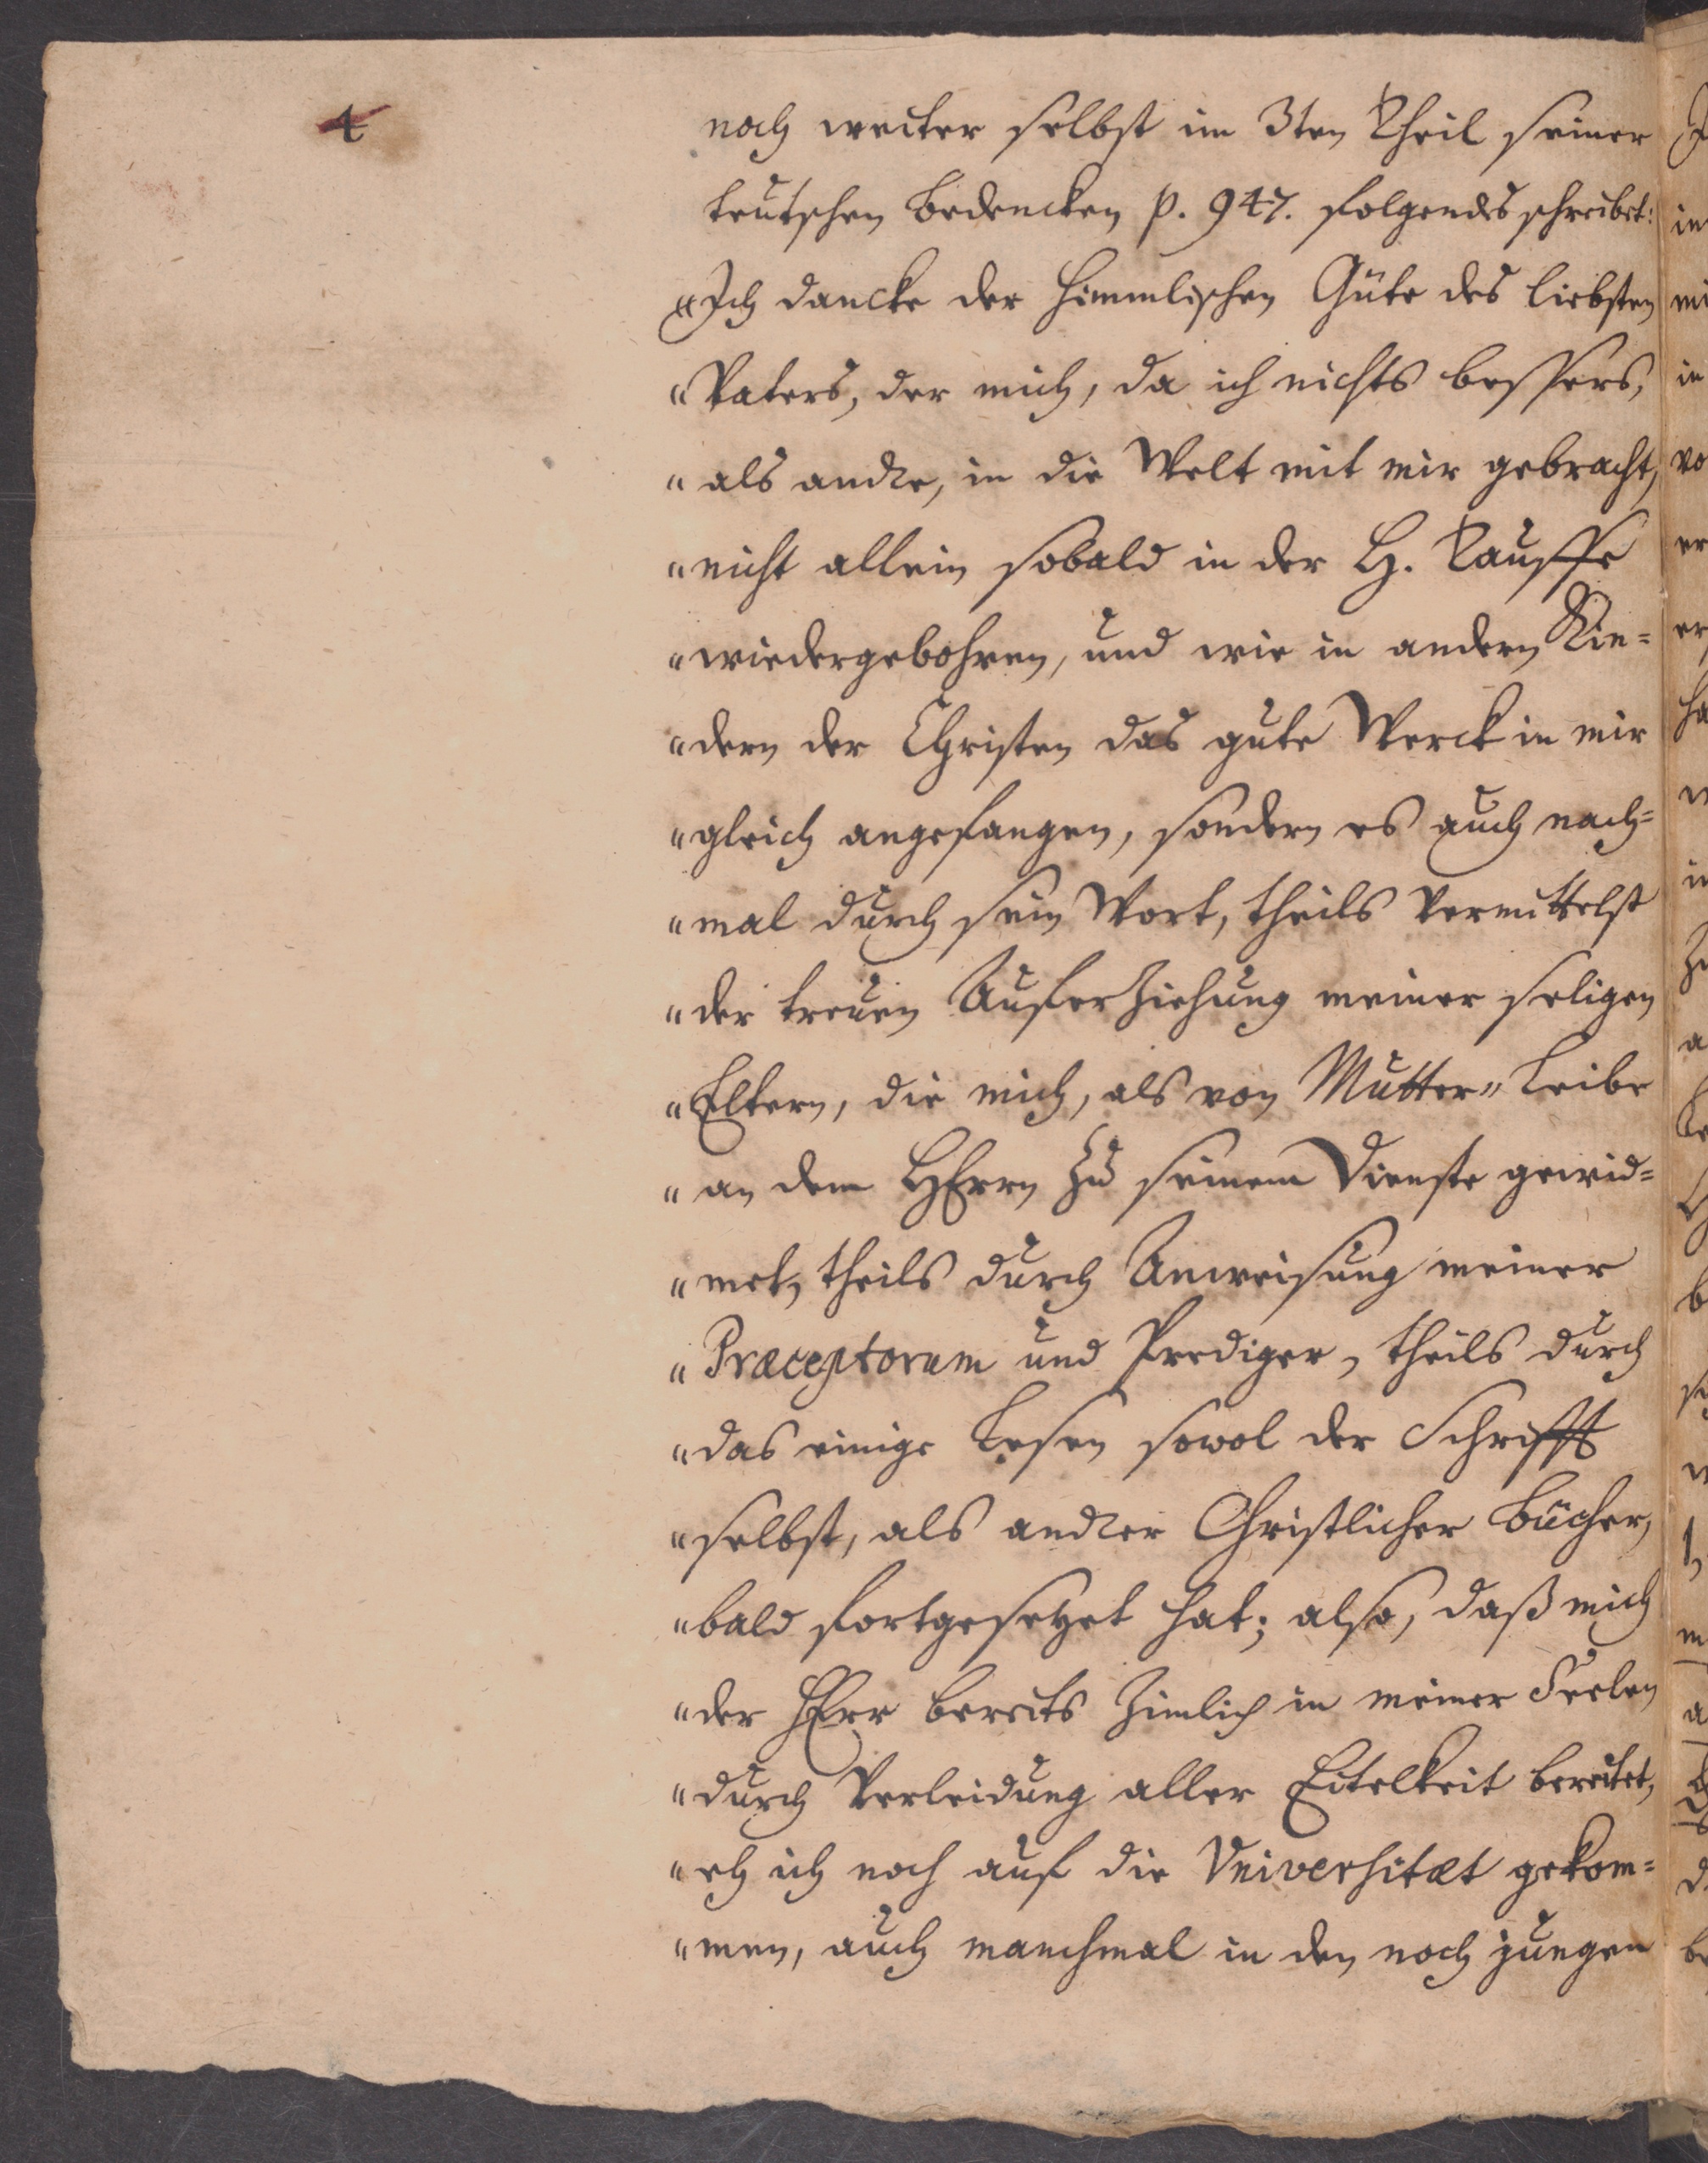 4
noch weiter selbst im 3ten Theil seiner
teutschen Bedencken p. 947. folgendes schreibet:
„Ich dancke der himmlischen Güte des liebsten
„Vaters, der mich, da ich nichts bessers,
„als andre, in die Welt mit mir gebracht,
„nicht allein sobald in der H. Tauffe
„wiedergebohren, und wie in andern Kin=
„dern der Christen das gute Werck in mir
„gleich angefangen, sondern es auch nach=
„mal durch sein Wort, theils vermittelst
„der treuen Auferziehung meiner seligen
„Eltern, die mich, als von Mutter„Leibe
„an dem HErrn zu seinem Dienste gewid=
„met, theils durch Anweisung meiner
„Præceptorum und Prediger, theils durch
„das einige Lesen sowol der Schrifft
„selbst, als andrer Christlicher Bücher,
„bald fortgesetzet hat; also, daß mich
„der HErr bereits zimlich in meiner Seelen
„durch Verleidung aller Eitelkeit bereitet,
„eh ich noch auf die Universitæt gekom=
„men, auch manchmal in den noch jungen